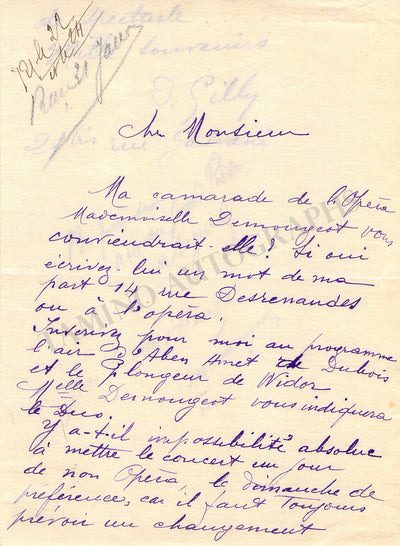 Cher Monsieur
Ma camarade de l'Opéra
Mademoiselle Demougeot vous
conviendrait-elle? Si oui
écrivez-lui un mot de ma
part 14 rue Desrenaudes
ou à l'opéra.
Inscrivez pour moi au programme
l'air d'Aben Hamet de Dubois
et le Plongeur de Widor
Melle Demougeot vous indiquera
le Duo.
Y a-t-il impossibilité absolue
à mettre le concert un jour
de non Opéra, le dimanche de
préférence, car il faut toujours
prévoir un changement
D. Gilly
souvenirs
TAMINO AUTOGRAPHS